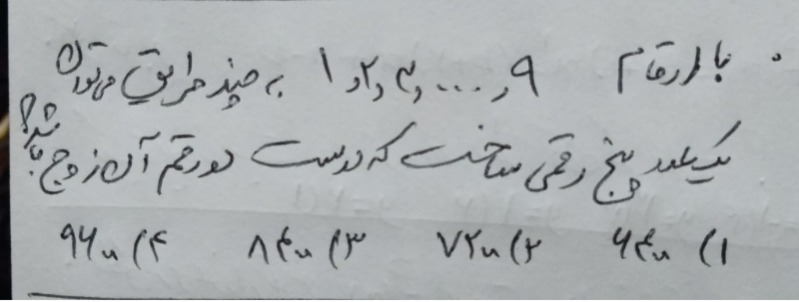 با ارقام ۹ و ... و ۳ و ۲ و ۱ به چند طریق می‌توان
یک عدد پنج رقمی ساخت که درست دو رقم آن زوج باشد؟
۱) ۶۴۰۰ ۲) ۷۲۰۰ ۳) ۸۴۰۰ ۴) ۹۶۰۰